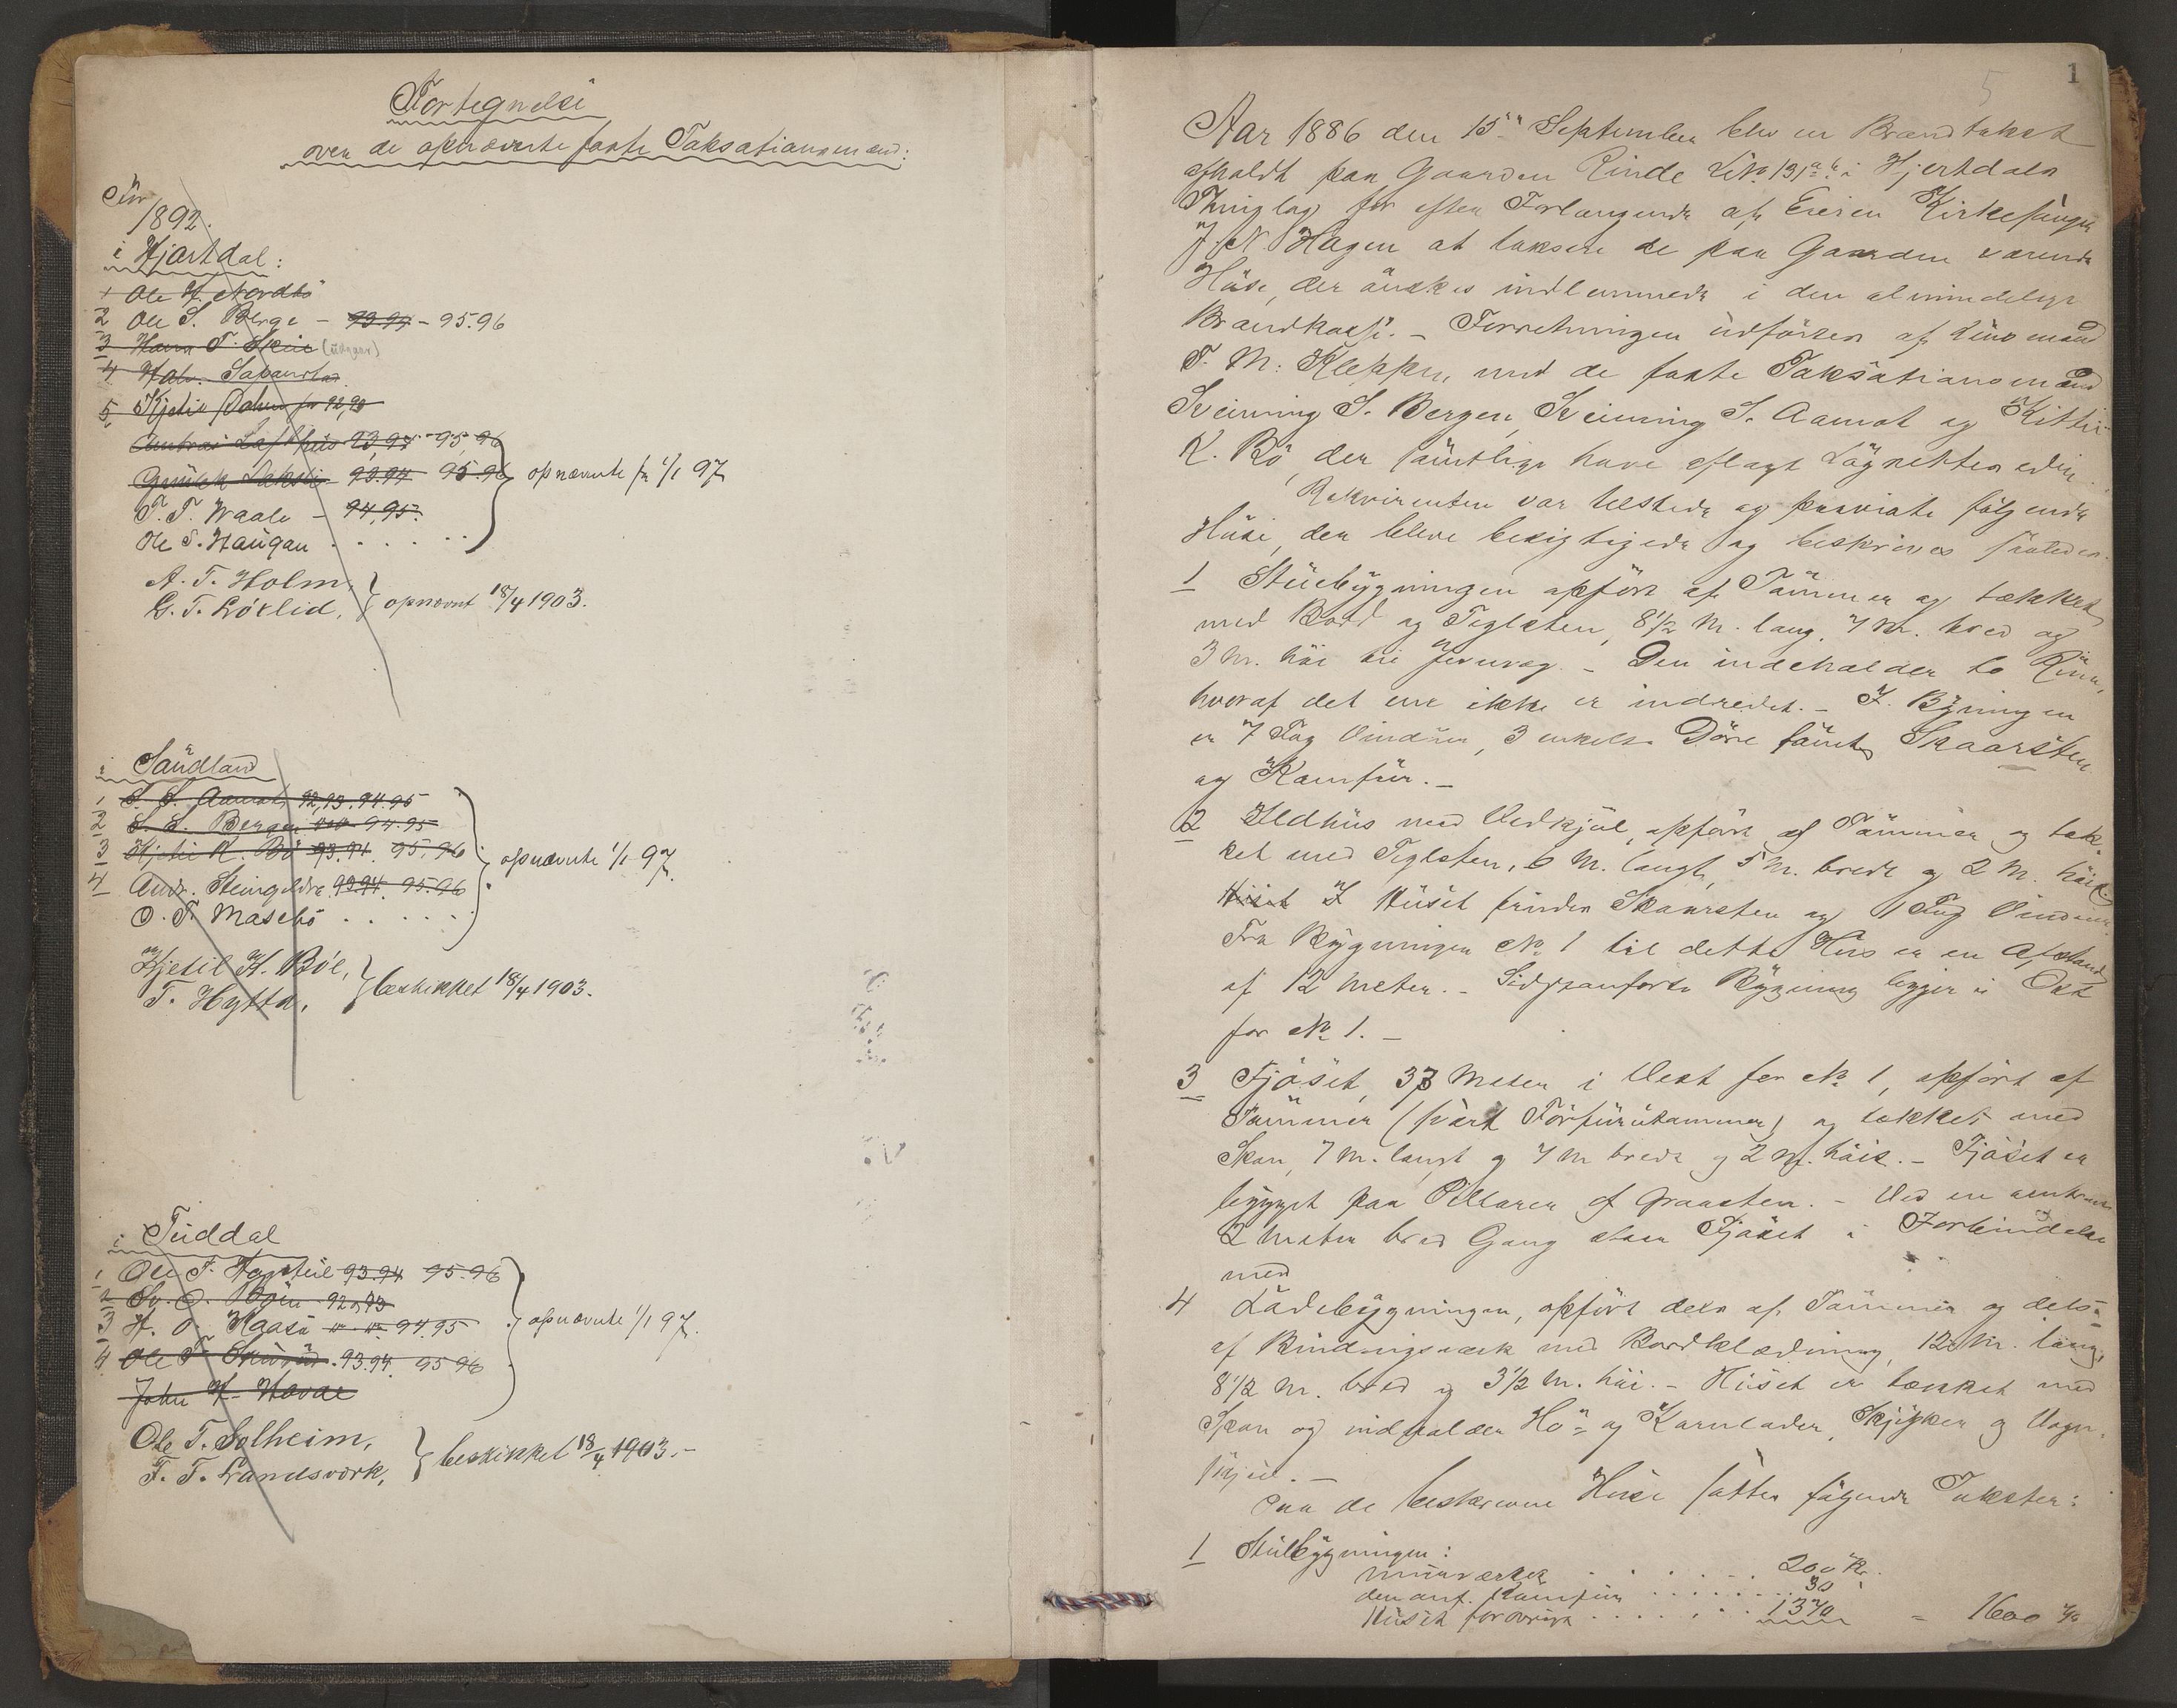 Fortegnelse
over de opnævnte faste Taksationsmænd:
For
1892.
i Hjartdal:
1 Ole H. Nordbö
2 Ole S. Berge - 93.94 - 95.96
3 Hans T. Skeie (udgaar)
4 Halv.
5 Kjetil 92,93
93,94 95,96
93.94 95.96 opnævnte fra 1/1 97
T. T. Waale - 94,95.
Ole S. Haugan . . . . . .
A. T. Holm,
G. T. Löklid, opnævnt 18/4 1903.
i Saudland
1 S. S. Aamot, 92,93.94.95
2 S. S. Bergen 94.95
3 Kjetil K. Bö 93.94. 95.96 opnævnte 1/1 97.
4 Andr. Steingildra 93.94. 95.96
O. T. Masebö . . . . . .
Kjetil H. Böe,
T. Hytta, beskikket 18/4 1903.
i Tuddal
1 Ole T. 93.94 95.96
2 Sv. O. Böen 92,93
3 H. O. Kaasa 94.95 opnævnte 1/1 97.
4 Ole T. 93.94. 95 96
John H. Hovde
Ole T. Solheim,
T. T. Landsverk, beskikket 18/4 1903.-
5 1
Aar 1886 den 15de September blev en Brandtakst
afholdt paa Gaarden Rinde LNo 131 a b i Hjertdals
Thinglag for efter Forlangende af Eieren Kirkesanger
J. N. Hagen at taksere de paa Gaarden værende
Huse, der önskes indlemmede i den almindelige
Brandkasse. - Forretningen udföres af Lensmand
T. M. Kleppen med de faste Taksationsmænd
Sveinung S. Bergen, Sveinung S. Aamot og Kittil
K. Bö, der samtlige have aflagt Lagretteseden.
Rekvirenten var tilstede og paaviste fölgende
Huse, der bleve besigtigede og beskrives saaledes:
1 Stuebygningen opfört af Tömmer og tækket
med Bord og Teglsten, 8 1/2 M. lang, 7 M. bred og
3 M. höi til Jevnrag. - Den indeholder to Rum,
hvoraf det ene ikke er indredet. - I Bygningen
er 7 Fag Vinduer, 3 enkelte Döre samt Skaarsten
og Kamfur. -
2 Ildhus med Vedskjul, opfört af Tömmer og tæk-
ket med Teglsten, 6 M. langt, 5 M. bredt og 2 M. höit.
Huset I Huset findes Skaarsten og 1 Fag Vinduer.
Fra Bygningen No 1 til dette Hus er en Afstand
af 12 Meter. - Sidstanförte Bygning ligger i Öst
for No 1. -
3 Fjöset, 33 Meter i Vest for No 1, opfört af
Tömmer og tækket med
Spon, 7 M. langt og 7 M bredt og 2 M. höit. - Fjöset er
bygget paa Pillarer af Graasten. - Ved en
2 Meter bred Gang staar Fjöset i Forbindelse
med
4 Ladebygningen, opfört dels af Tömmer og dels
af Bindingsværk med Bordklædning, 12 M. lang,
8 1/2 M. bred og 3 1/2 M. höi. - Huset er tækket med
Spon og indholder Hö- og Kornlader, Skjykker og Vogn-
skjul. -
Paa de beskrevne Huse sattes fölgende Takster:
1 Stuebygningen:
Murværket . . . . . . 200 Kr.
den anf. Kamfur . . . . . . 30 "
Huset forövrigt . . . . . . 1370 = 1600 Kr